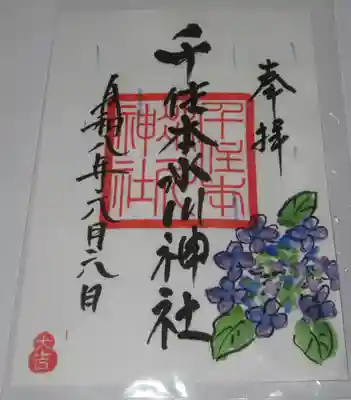 奉拝
千住本氷川神社
令和 年六月六日
千住本
氷川
神社
大吉